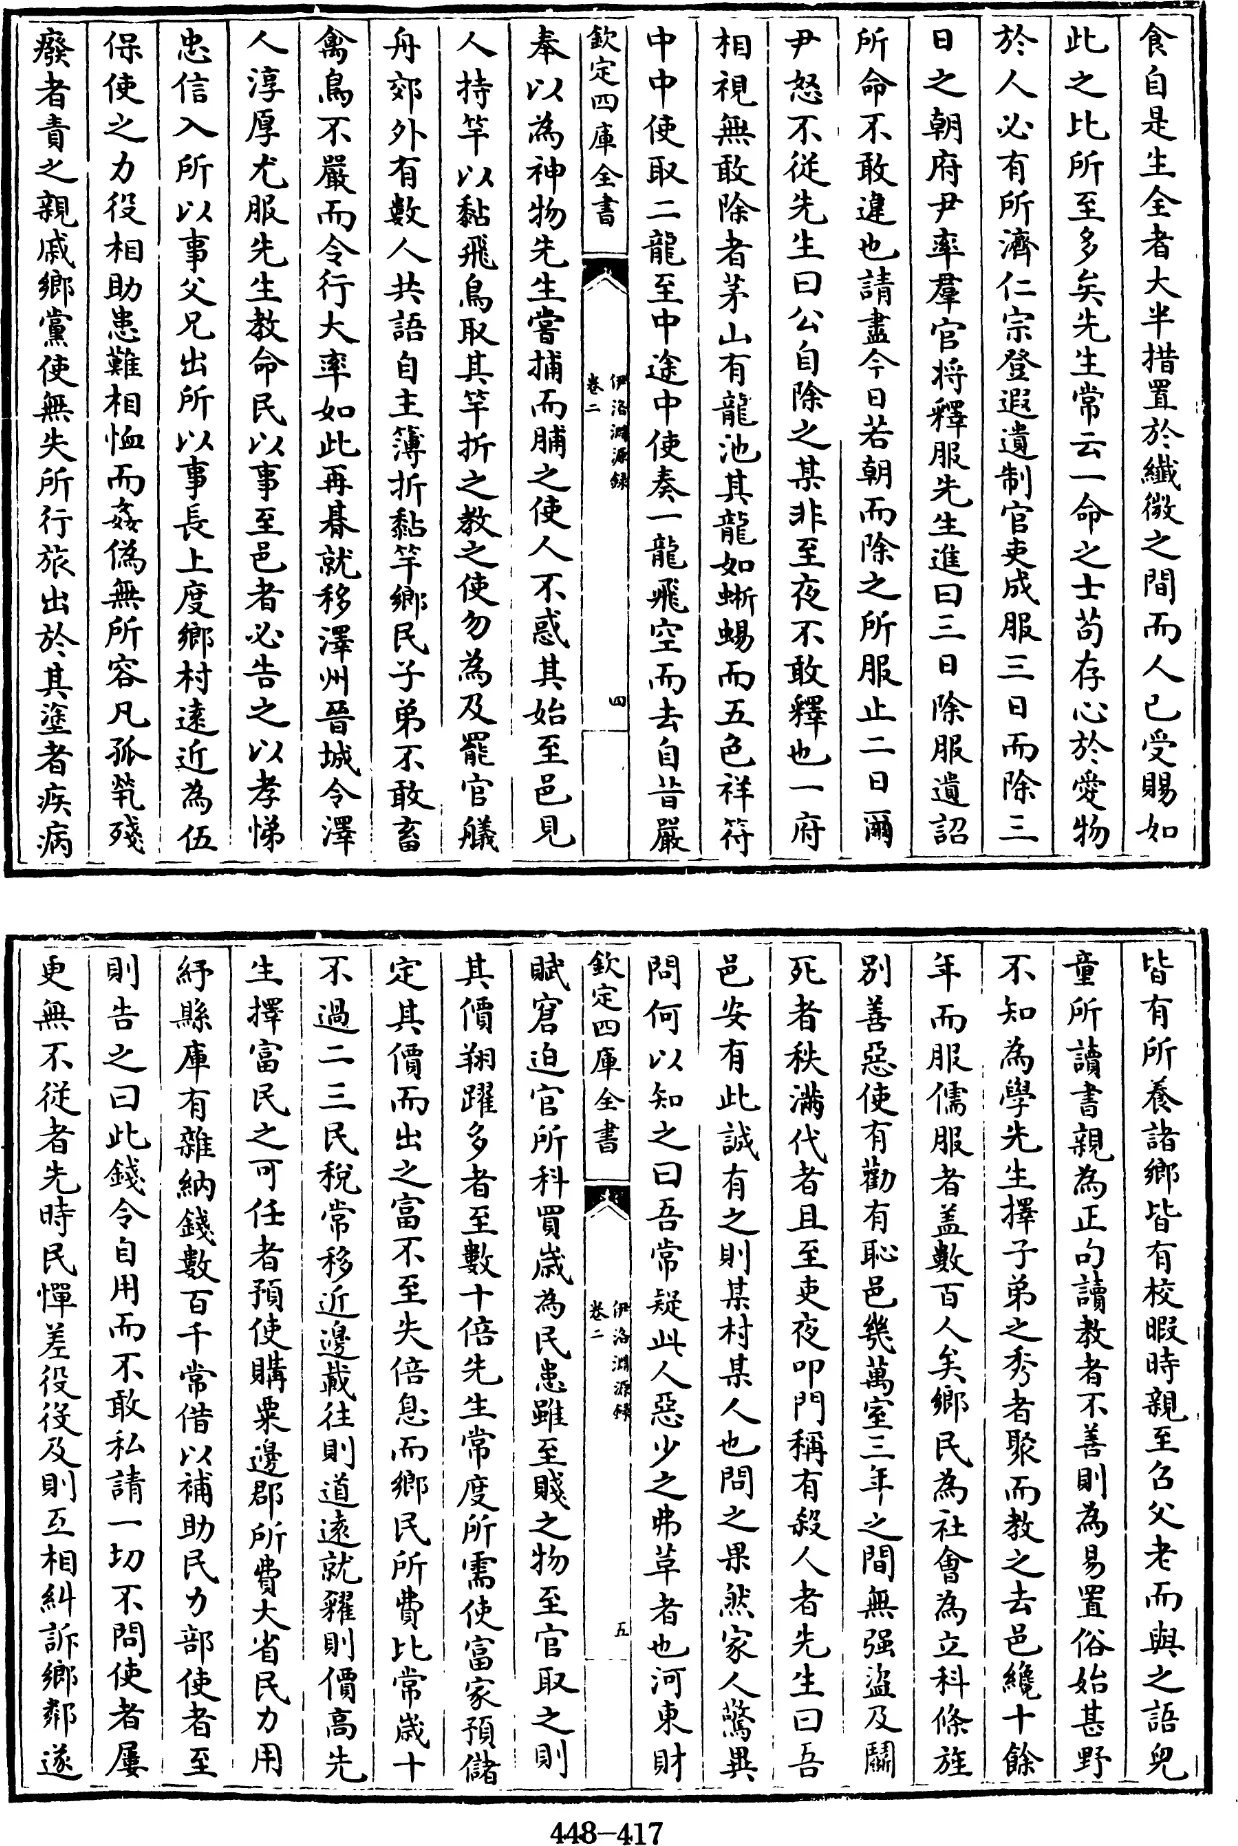 食自是生全者大半措置於纖微之間而人已受賜如
此之比所至多矣先生常云一命之士茍存心於愛物
於人必有所濟仁宗登遐遺制官吏成服三日而除三
日之朝府尹率羣官將釋服先生進曰三日除服遺詔
所命不敢違也請盡今日若朝而除之所服止二日爾
尹怒不從先生曰公自除之某非至夜不敢釋也一府
相視無敢除者茅山有龍池其龍如蜥蜴而五色祥符
中中使取二龍至中途中使奏一龍飛空而去自昔嚴
欽定四庫全書
伊洛淵源録
卷二
四
奉以為神物先生嘗捕而脯之使人不惑其始至邑見
人持竿以黏飛鳥取其竿折之教之使勿為及罷官艤
舟郊外有數人共語自主簿折黏竿鄉民子弟不敢畜
禽鳥不嚴而令行大率如此再朞就移澤州晉城令澤
人淳厚尤服先生教命民以事至邑者必告之以孝悌
忠信入所以事父兄出所以事長上度鄉村逺近為伍
保使之力役相助患難相恤而姦偽無所容凡孤煢殘
癈者責之親戚鄉黨使無失所行旅出於其塗者疾病
皆有所養諸鄉皆有校暇時親至召父老而與之語兒
童所讀書親為正句讀教者不善則為易置俗始甚野
不知為學先生擇子弟之秀者聚而教之去邑纔十餘
年而服儒服者盖數百人矣鄉民為社會為立科條旌
别善惡使有勸有恥邑幾萬室三年之間無强盗及鬬
死者秩滿代者且至吏夜叩門稱有殺人者先生曰吾
邑安有此誠有之則某村某人也問之果然家人驚異
問何以知之曰吾常疑此人惡少之弗革者也河東財
欽定四庫全書
伊洛淵源録
卷二
五
賦窘迫官所科買嵗為民患雖至賤之物至官取之則
其價翔躍多者至數十倍先生常度所需使富家預儲
定其價而出之富不至失倍息而鄉民所費比常嵗十
不過二三民税常移近邊載往則道逺就糴則價高先
生擇富民之可任者預使購粟邊郡所費大省民力用
紓縣庫有雜納錢數百千常借以補助民力部使者至
則告之曰此錢令自用而不敢私請一切不問使者屢
更無不從者先時民憚差役役及則互相糾訴鄉鄰遂
448—417